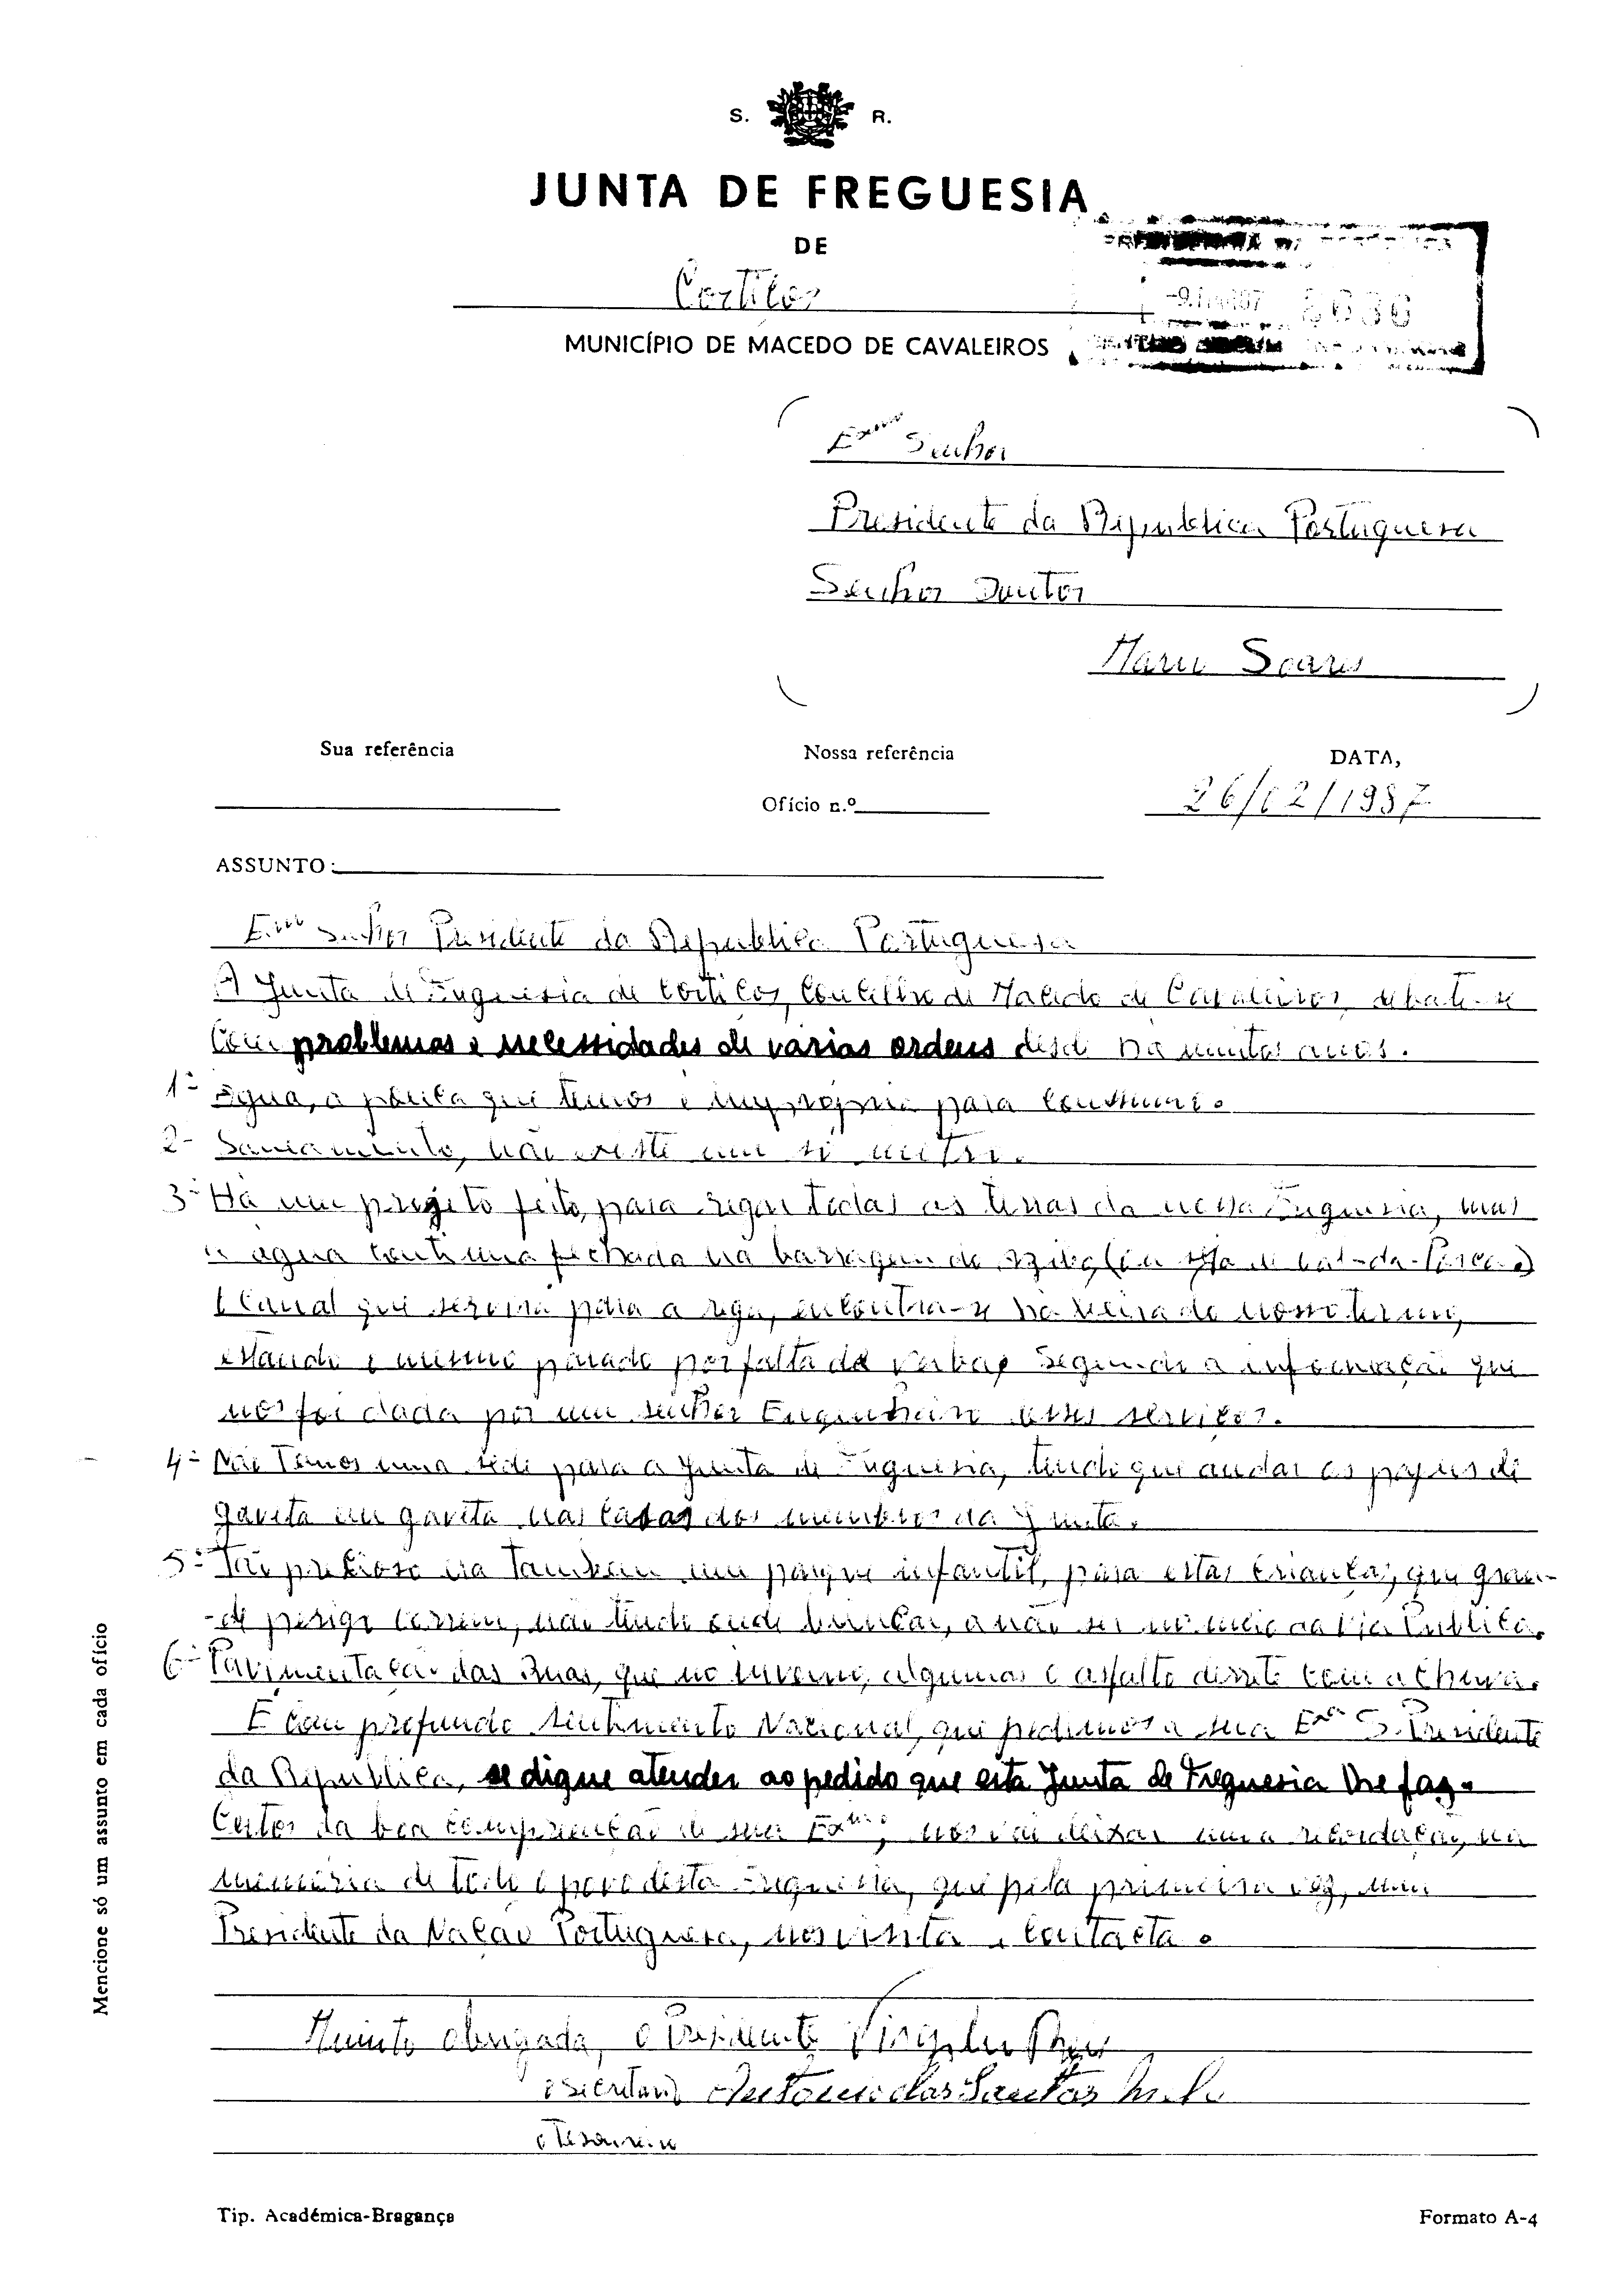 S. R.
JUNTA DE FREGUESIA
DE
Cortiços
MUNICÍPIO DE MACEDO DE CAVALEIROS
Exmo Senhor
Presidente da Republica Portuguesa
Senhor Doutor
Mario Soares
Sua referência Nossa referência DATA,
Ofício n.º 26/02/1987
ASSUNTO:
Exmo Senhor Presidente da Republica Portuguesa
A Junta de Freguesia de Cortiços, Concelho de Macedo de Cavaleiros, debate-se
com problemas e necessidades de varias ordens desde há muitos anos.
1- Água, a pouca que temos é impropria para consumo.
2- Saniamento, não existe um só metro.
3- Há um projeto feito, para regar todas as terras da nossa Freguesia, mas
a agua continua fechada na barragem do Azibo
O Canal que serviria para a rega, encontra-se na beira do nosso termo,
estando o mesmo parado por falta de verbas segundo a informação que
nos foi dada por um senhor Engenheiro desses serviços.
4- Não Temos uma sede para a Junta de Freguesia, tendo que andar os papeis de
gaveta em gaveta nas casas dos membros da Junta.
5- Tão precioso era Tambem um parque infantil, para estas crianças, que gran-
-de perigo correm, não tendo onde brincar, a não ser no meio da Via Publica.
6- Pavimentação das Ruas, que no inverno, algumas o asfalto derrete com a chuva.
É com profundo sentimento Nacional, que pedimos a sua Exa S. Presidente
da Republica, se digne atender ao pedido que esta Junta de Freguesia lhe faz.
Certos da boa compreenção de sua Exa, nos vai deixar uma recordação, na
memória de todo o povo desta Freguesia, que pela primeira vez, um
Presidente da Nação Portuguesa, nos visita e contacta.
Muinto obrigado, o Presidente Virgilio
o Secretario Antonio dos Santos
o Tesoureiro
Mencione só um assunto em cada ofício
Tip. Académica-Bragança Formato A-4